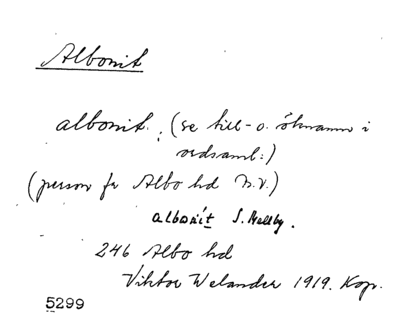 Albonit
albonit. (se till- o. öknamn i
ordsaml:)
(person fr Albo hd N.V.)
albonit S. Mellby.
246 Albo hd
Viktor Welander 1919. Kop.
5299